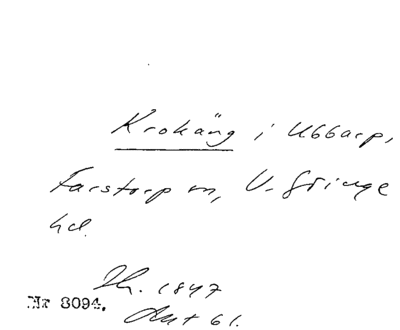 Krokäng i Ubbarp,
Farstorp sn, V. Göinge
hd.
Th. 1847
Nr 8094. Akt 61.